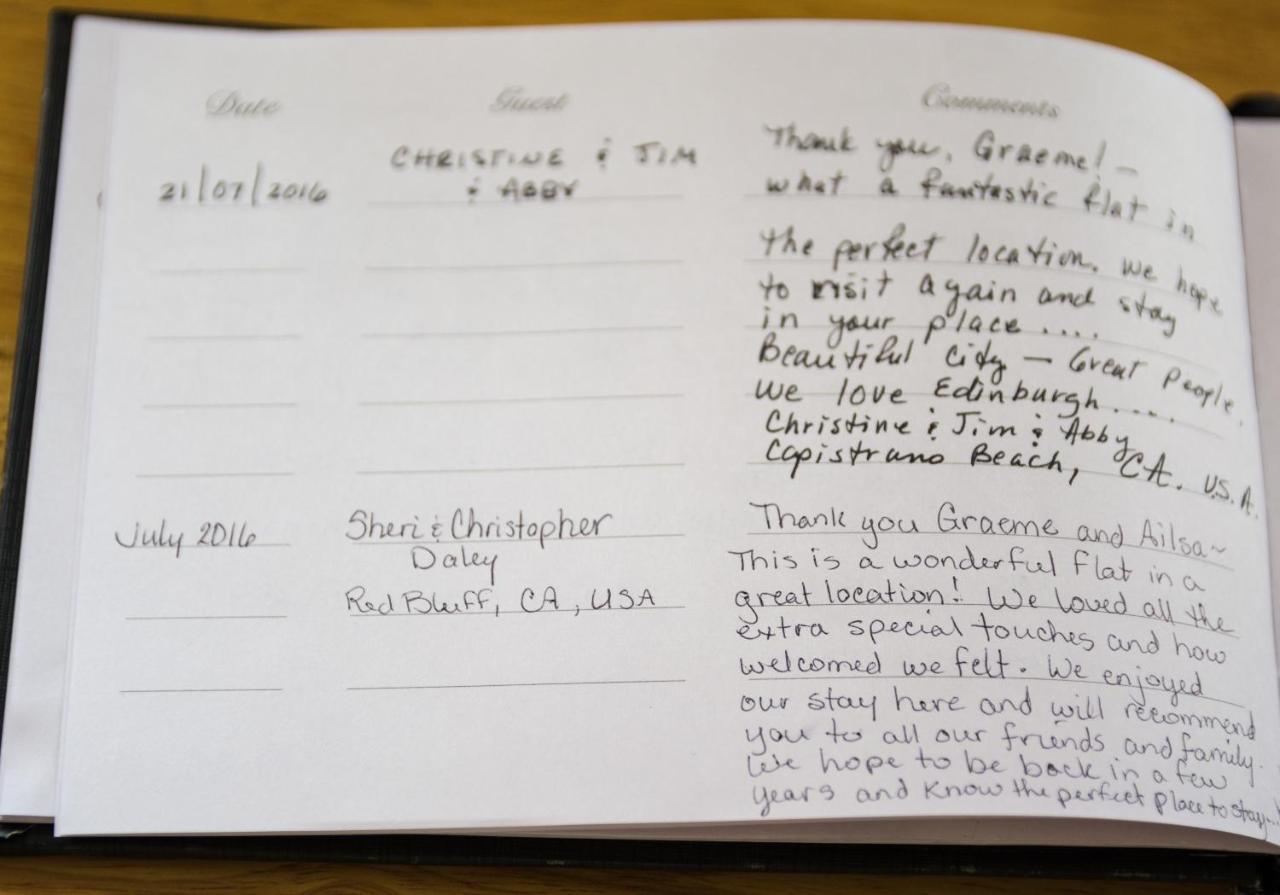 Date Guest Comments
21/07/2016
CHRISTINE & JIM
& ABBY
Thank you, Graeme! –
what a fantastic flat in
the perfect location. We hope
to visit again and stay
in your place ....
Beautiful City — Great People.
We love Edinburgh....
Christine & Jim & Abby
Capistrano Beach, CA. U.S.A.
July 2016
Sheri & Christopher
Daley
Red Bluff, CA, USA
Thank you Graeme and Ailsa~
This is a wonderful flat in a
great location! We loved all the
extra special touches and how
welcomed we felt. We enjoyed
our stay here and will recommend
you to all our friends and family.
We hope to be back in a few
years and know the perfect place to stay...!